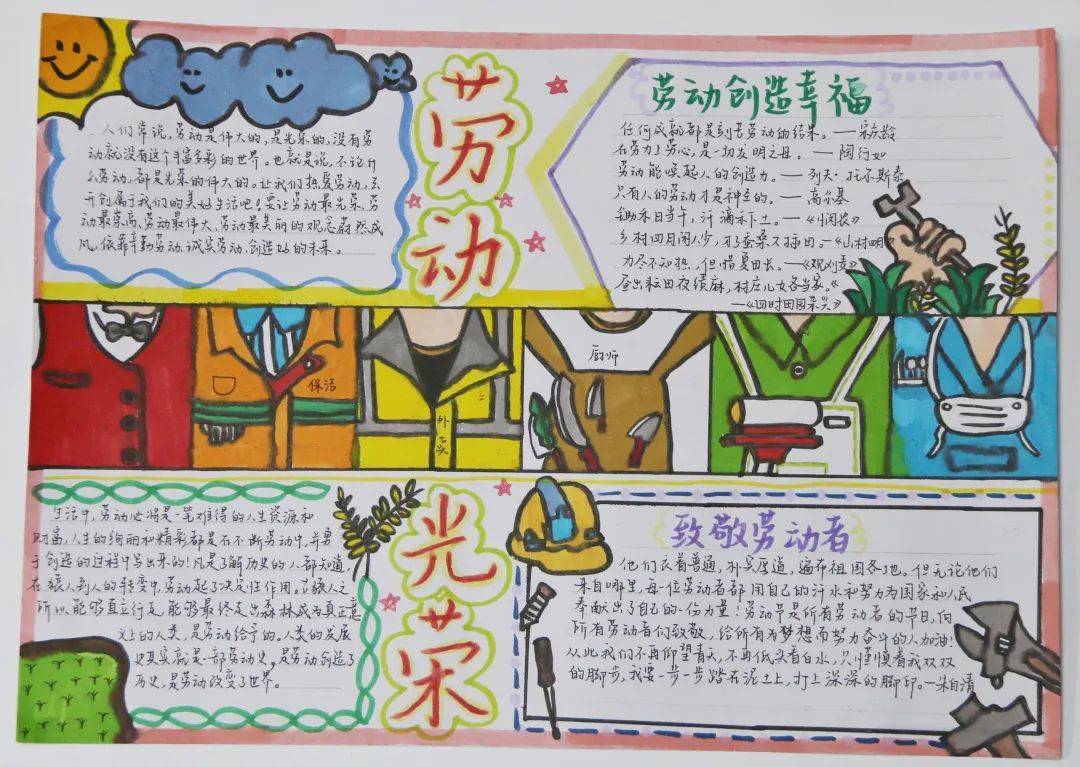 劳动
人们常说,劳动是伟大的,是光荣的,没有劳
动就没有这个丰富多彩的世界。也就是说,不论什
么劳动,都是光荣的伟大的。让我们热爱劳动,去
开创属于我们的美好生活吧!要让劳动最光荣、劳
动最崇高、劳动最伟大、劳动最美丽的观念蔚然成
风,依靠辛勤劳动、诚实劳动、创造 的未来。
劳动创造幸福
任何成就都是刻苦劳动的结果。——宋庆龄
在劳力上劳心,是一切发明之母。——陶行知
劳动能唤起人的创造力。——列夫·托尔斯泰
只有人的劳动才是神圣的。——高尔基
锄禾日当午,汗滴禾下土。——《悯农》
乡村四月闲人少,才了蚕桑又插田。—《山村四月》
力尽不知热,但惜夏日长。——《观刈麦》
昼出耘田夜绩麻,村庄儿女各当家。
——《四时田园杂兴》
保洁
外卖
厨师
光荣
生活中,劳动必将是一笔难得的人生资源和
财富,人生的绚丽和精彩都是在不断劳动中,并勇
于创造的过程中写出来的!凡是了解历史的人都知道
在猿到人的转变中,劳动起了决定性作用。古猿人之
所以能够直立行走,能够最终走出森林成为真正意
义上的人类,是劳动给予的,人类的发展
史其实就是一部劳动史。是劳动创造了
历史,是劳动改变了世界。
致敬劳动者
他们衣着普通,朴实厚道,遍布祖国各地。但无论他们
来自哪里,每一位劳动者都用自己的汗水和努力为国家和人民
奉献出了自己的一份力量!劳动节是所有劳动者的节日,向
所有劳动者们致敬,给所有为梦想而努力奋斗的人加油!
从此我们不再仰望青天,不再低头看白水,只谨慎着我双双
的脚步,我要一步一步踏在泥土上,打上深深的脚印。—朱自清